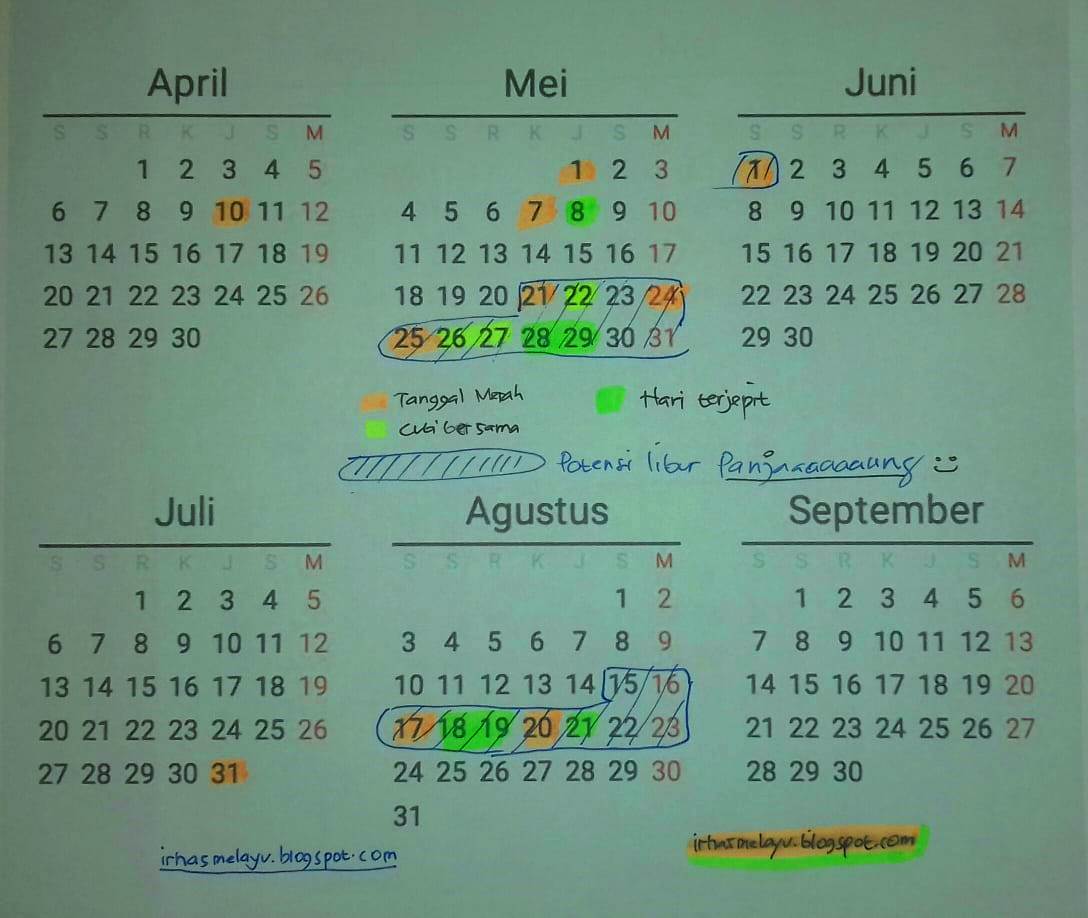 April Mei Juni
S S R K J S M S S R K J S M S S R K J S M
1 2 3 4 5 1 2 3 1 2 3 4 5 6 7
6 7 8 9 10 11 12 4 5 6 7 8 9 10 8 9 10 11 12 13 14
13 14 15 16 17 18 19 11 12 13 14 15 16 17 15 16 17 18 19 20 21
20 21 22 23 24 25 26 18 19 20 21 22 23 24 22 23 24 25 26 27 28
27 28 29 30 25 26 27 28 29 30 31 29 30
Tanggal Merah Hari terjepit
Cuti bersama
Potensi libur Panjnaaaaaaung
Juli Agustus September
S S R K J S M S S R K J S M S S R K J S M
1 2 3 4 5 1 2 1 2 3 4 5 6
6 7 8 9 10 11 12 3 4 5 6 7 8 9 7 8 9 10 11 12 13
13 14 15 16 17 18 19 10 11 12 13 14 15 16 14 15 16 17 18 19 20
20 21 22 23 24 25 26 17 18 19 20 21 22 23 21 22 23 24 25 26 27
27 28 29 30 31 24 25 26 27 28 29 30 28 29 30
31
irhasmelayu.blogspot.com irhasmelayu.blogspot.com